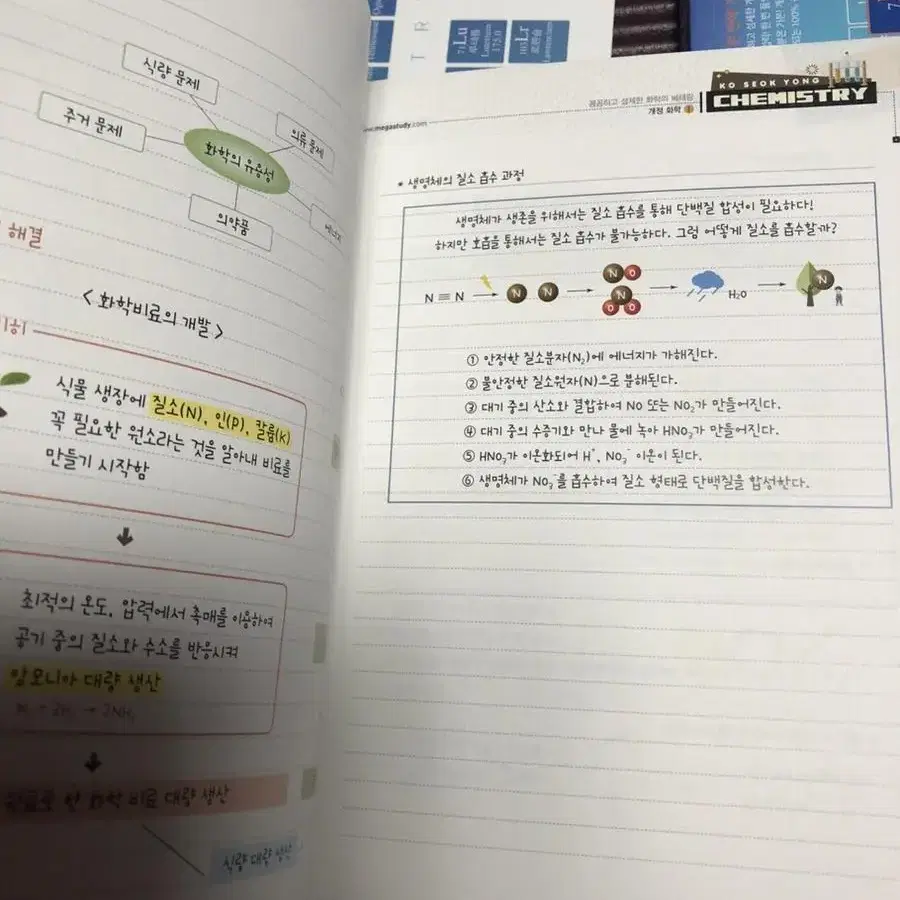 T R
71Lu
루테튬
Lutetium
175.0
103Lr
로렌슘
식량 문제
주거 문제
의류 문제
화학의 유용성
의약품
에너지
해결
< 화학비료의 개발 >
식물 생장에 질소(N), 인(P), 칼륨(K)
꼭 필요한 원소라는 것을 알아내 비료를
만들기 시작함
최적의 온도, 압력에서 촉매를 이용하여
공기 중의 질소와 수소를 반응시켜
암모니아 대량 생산
화학 비료 대량 생산
식량 대량 생산
꼼꼼하고 섬세한 화학의 베테랑
개정 화학 I
KO SEOK YONG
CHEMISTRY
www.megastudy.com
* 생명체의 질소 흡수 과정
생명체가 생존을 위해서는 질소 흡수를 통해 단백질 합성이 필요하다!
하지만 호흡을 통해서는 질소 흡수가 불가능하다. 그럼 어떻게 질소를 흡수할까?
N ≡ N
N N
N O
N
O O
H₂O
N
① 안정한 질소분자(N₂)에 에너지가 가해진다.
② 불안정한 질소원자(N)으로 분해된다.
③ 대기 중의 산소와 결합하여 NO 또는 NO₂가 만들어진다.
④ 대기 중의 수증기와 만나 물에 녹아 HNO₃가 만들어진다.
⑤ HNO₃가 이온화되어 H⁺, NO₃⁻ 이온이 된다.
⑥ 생명체가 NO₃⁻를 흡수하여 질소 형태로 단백질을 합성한다.